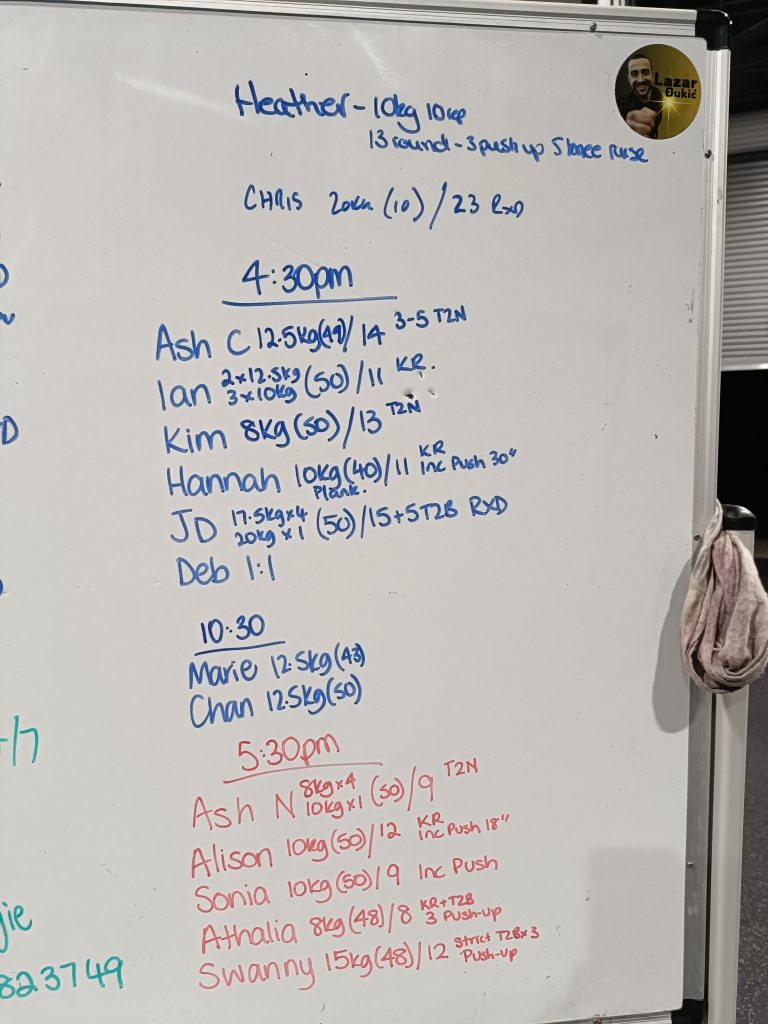 Lazar
Đukić
Heather - 10kg 10rep
13 round - 3 push up 5 knee raise
CHRIS 20KG (10) / 23 RXD
4:30pm
Ash C 12.5kg(49)/14 3-5 T2N
Ian 2x12.5kg 3x10kg (50)/11 KR.
Kim 8kg (50)/13 T2N
Hannah 10kg(40)/11 KR Inc Push 30"
Plank.
JD 17.5kg x 4 20kg x 1 (50)/15+5 T2B RXD
Deb 1:1
10:30
Marie 12.5kg(43)
Chan 12.5kg(50)
5:30pm
Ash N 8kg x 4 10kg x 1 (50)/9 T2N
Alison 10kg(50)/12 KR Inc Push 18"
Sonia 10kg(50)/9 Inc Push
Athalia 8kg(48)/8 KR+T2B 3 Push-up
Swanny 15kg(48)/12 Strict T2B x 3 Push-up
/7
gie
823749